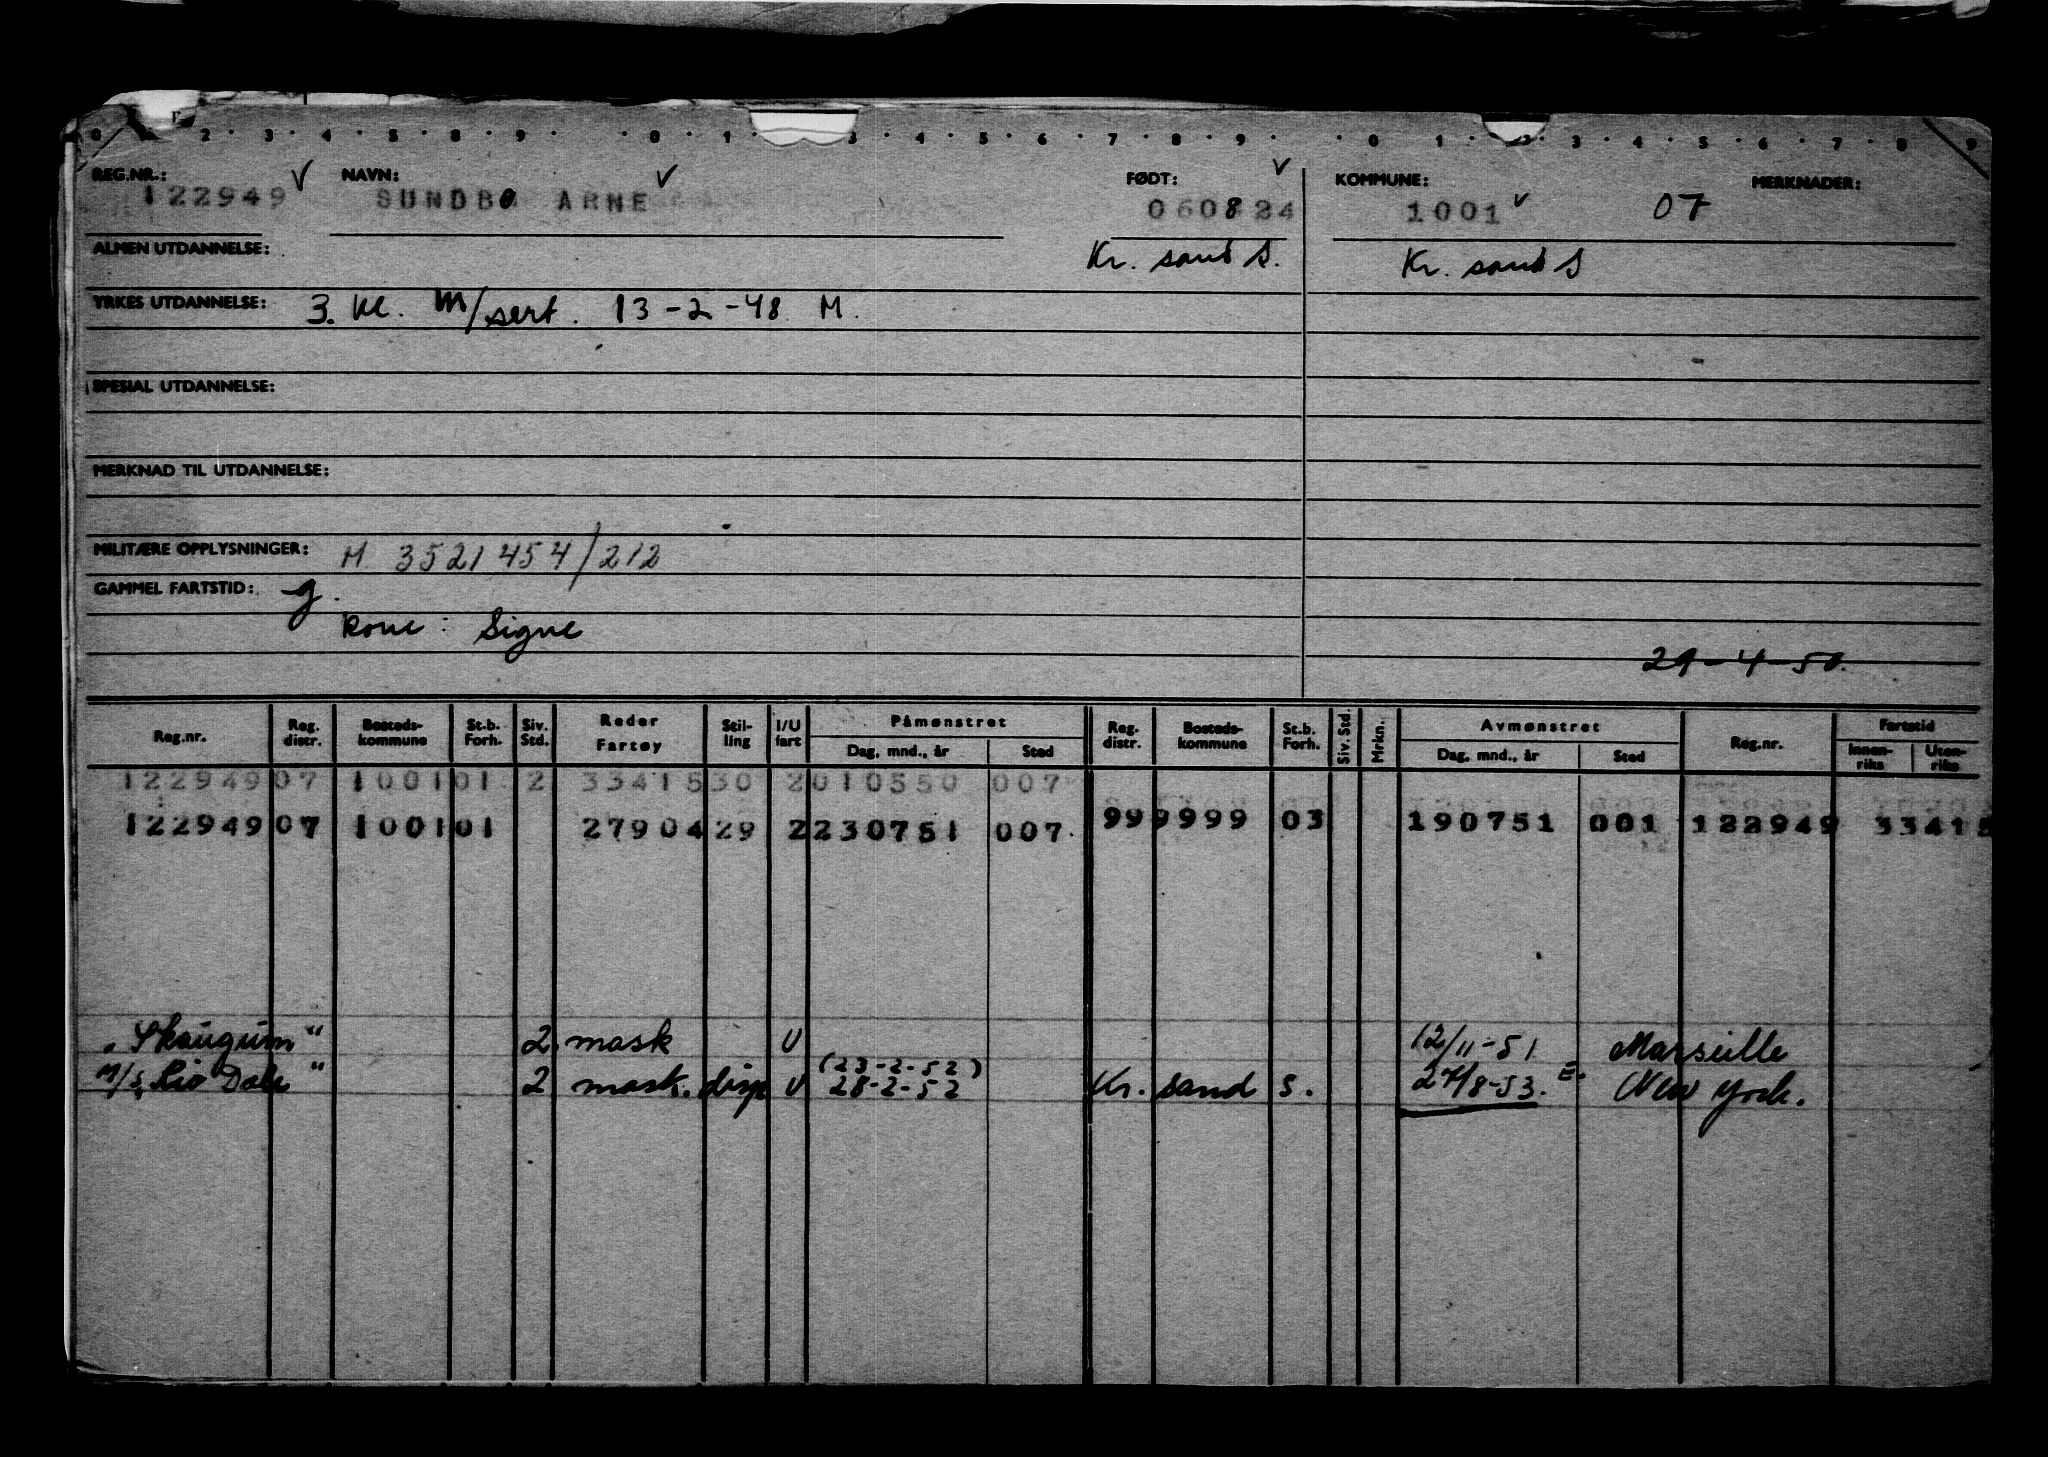 0 2 · 3 · 4 · 5 · 8 · 9 · · 0 · 1 3 · 4 · 5 · 6 · 7 · 8 · 9 · · 0 · 1 · 2 · 3 · 4 · 5 · 6 · 7 · 8 · 9
REG.NR.: NAVN: FØDT: KOMMUNE: MERKNADER:
122949 SUNDBØ ARNE 060824 1001 07
ALMEN UTDANNELSE: Kr. sand S. Kr. sand S
YRKES UTDANNELSE: 3. kl. m/sert. 13-2-48 M.
SPESIAL UTDANNELSE:
MERKNAD TIL UTDANNELSE:
MILITÆRE OPPLYSNINGER: M 3521454/212
GAMMEL FARTSTID: g.
Kone: Signe
29-4-50.
Reg.nr. Reg. distr. Bosteds-kommune St.b. Forh. Siv. Std. Reder Fartøy Stil-ling I/U fart Påmønstret Dag, mnd., år Sted Reg. distr. Bosteds-kommune St.b. Forh. Siv. Std. Mrkn. Avmønstret Dag, mnd., år Sted Reg.nr. Fartstid Innen-riks Uten-riks
122949 07 1001 01 2 33415 30 2 010550 007
122949 07 1001 01 27904 29 2 230751 007 99 9999 03 190751 001 122949 33415
„Skaugum" 2. mask U 12/11-51 Marseille
(23-2-52)
M/S „Rio Dale" 2 mask. disp U 28-2-52 Kr. sand S. 27/8-53. E. New York.